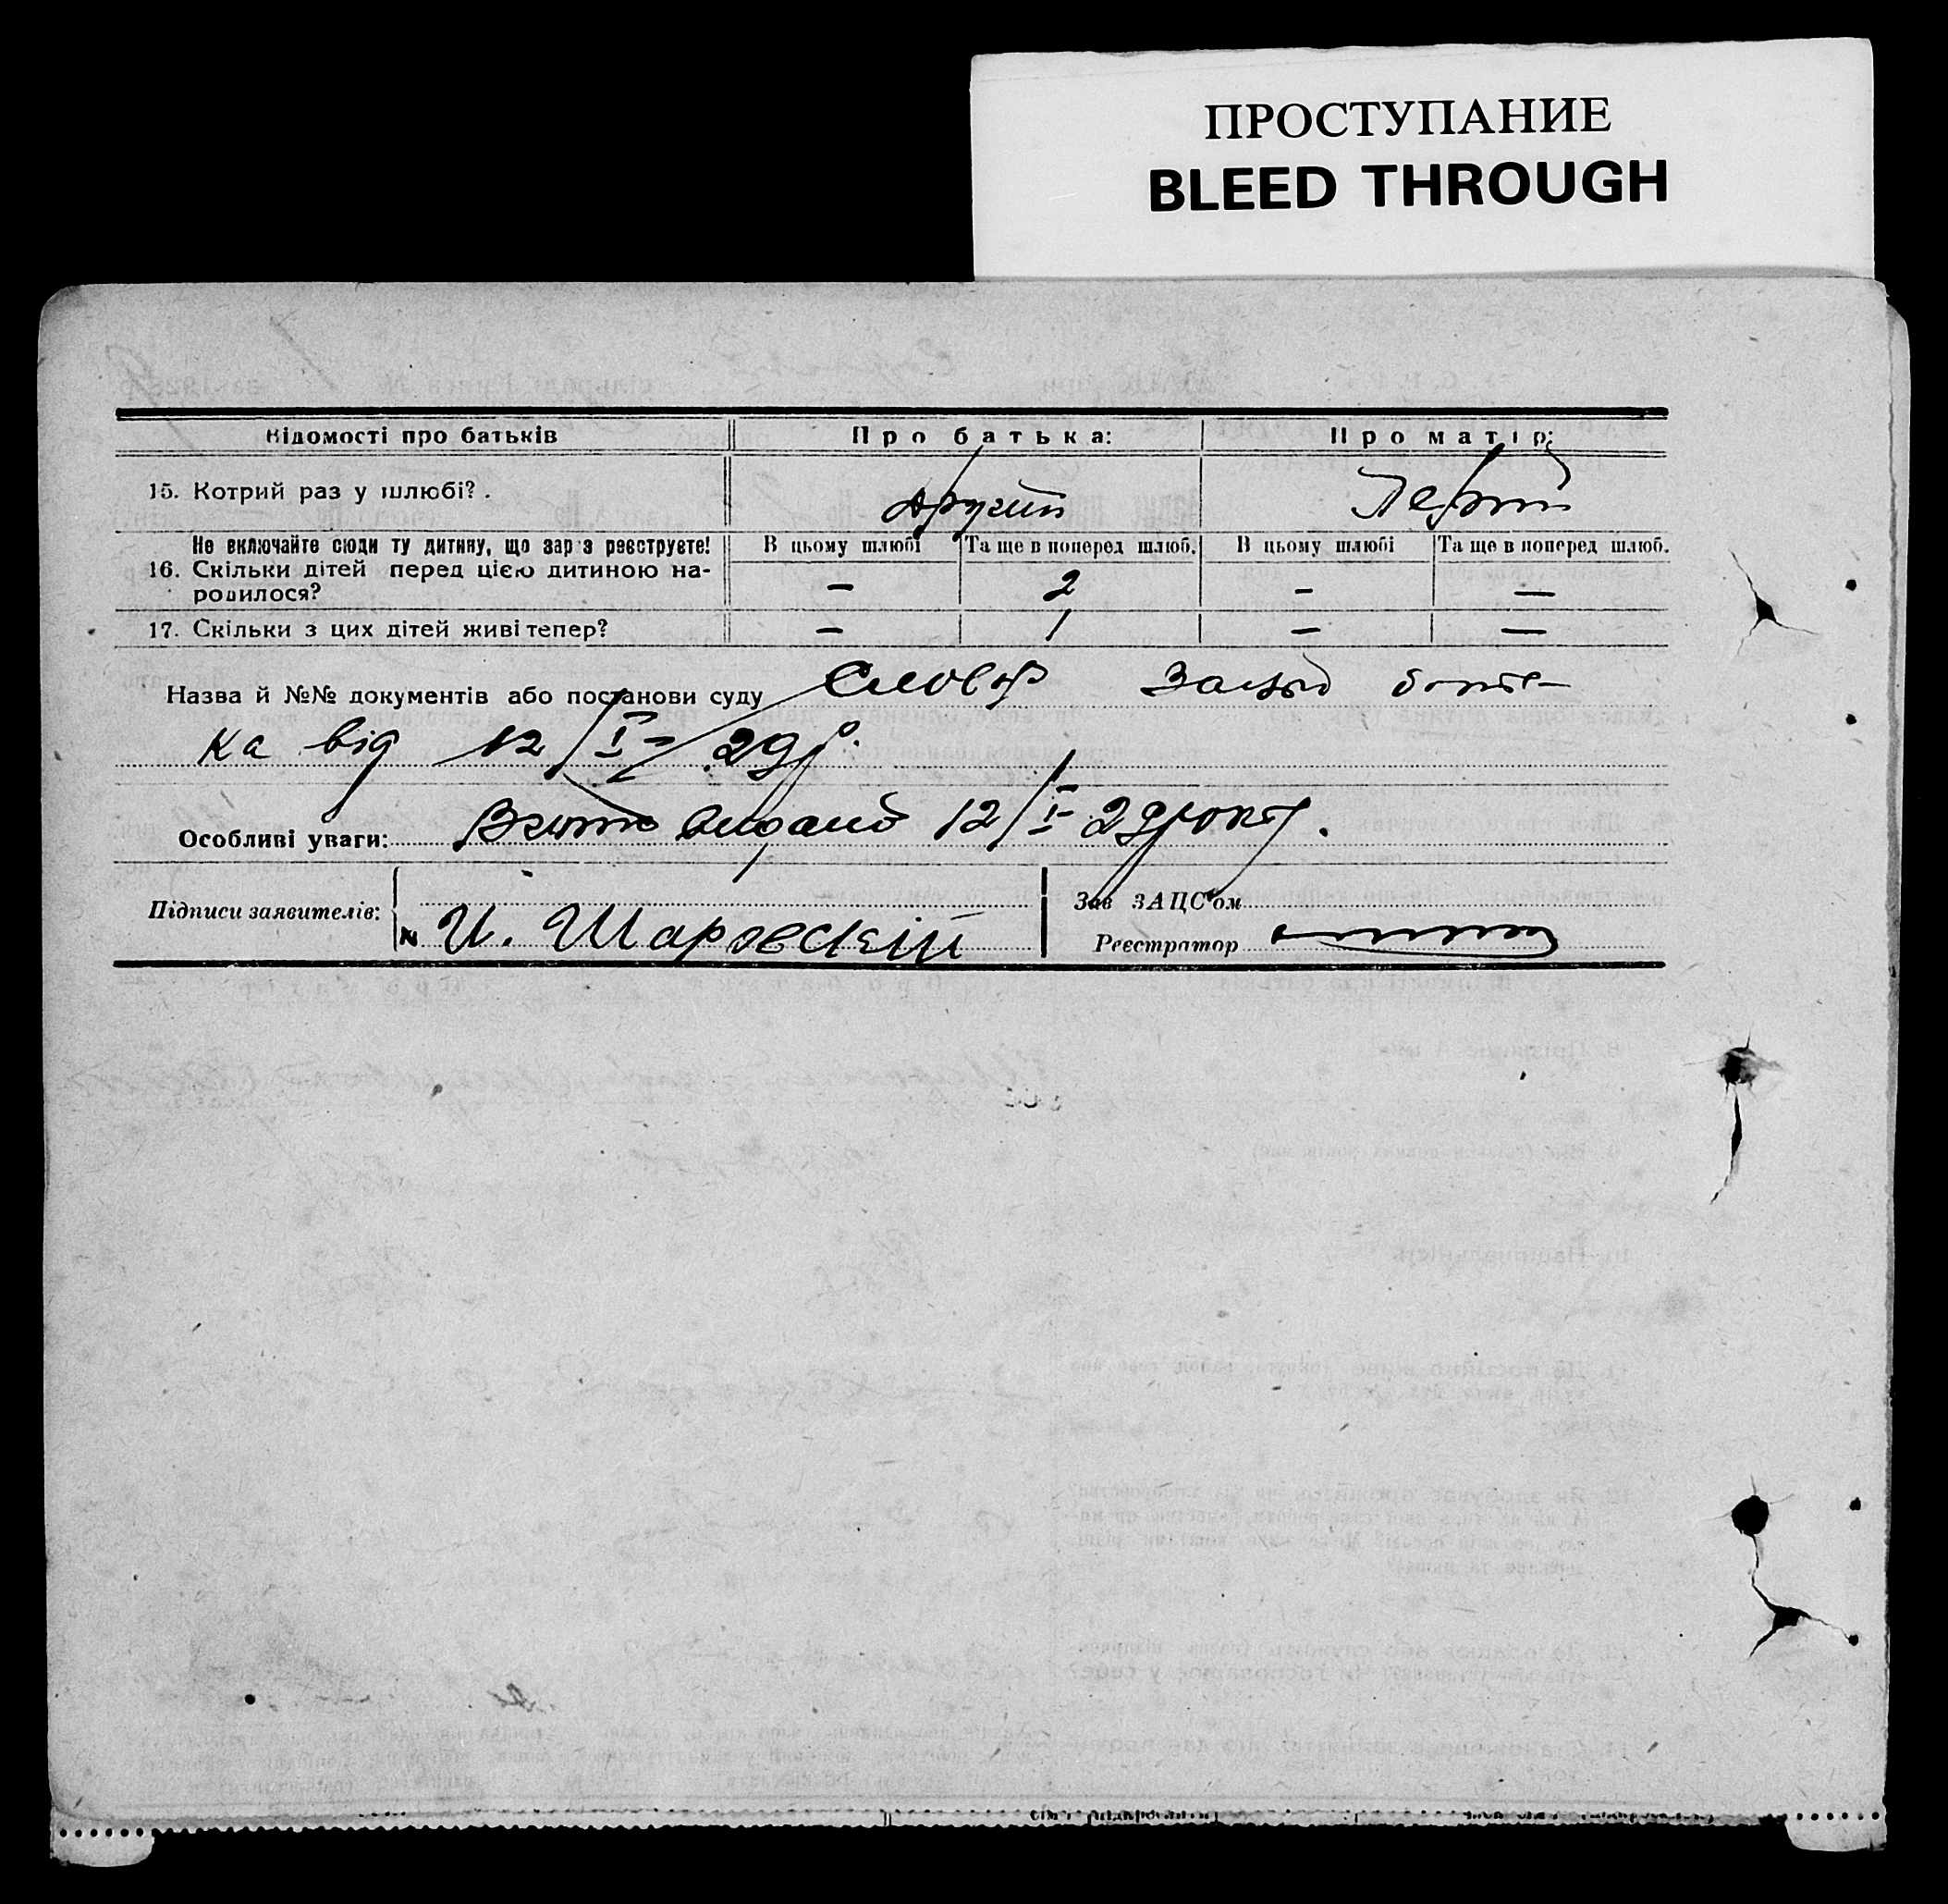 ПРОСТУПАНИЕ
BLEED THROUGH
Відомості про батьків Про батька: Про матір:
15. Котрий раз у шлюбі? . другий Первий
Не включайте сюди ту дитину, що зараз реєструєте! В цьому шлюбі Та ще в поперед шлюб. В цьому шлюбі Та ще в поперед шлюб.
16. Скільки дітей перед цією дитиною на-
родилося? — 2 — —
17. Скільки з цих дітей живі тепер? — 1 — —
Назва й №№ документів або постанови суду Словф бать-
ка від 12/I-29 р.
Особливі уваги: Витяг видано 12/I-29 року.
Підписи заявителів:
И. Шаровский
Зав ЗАЦС'ом
Реєстратор